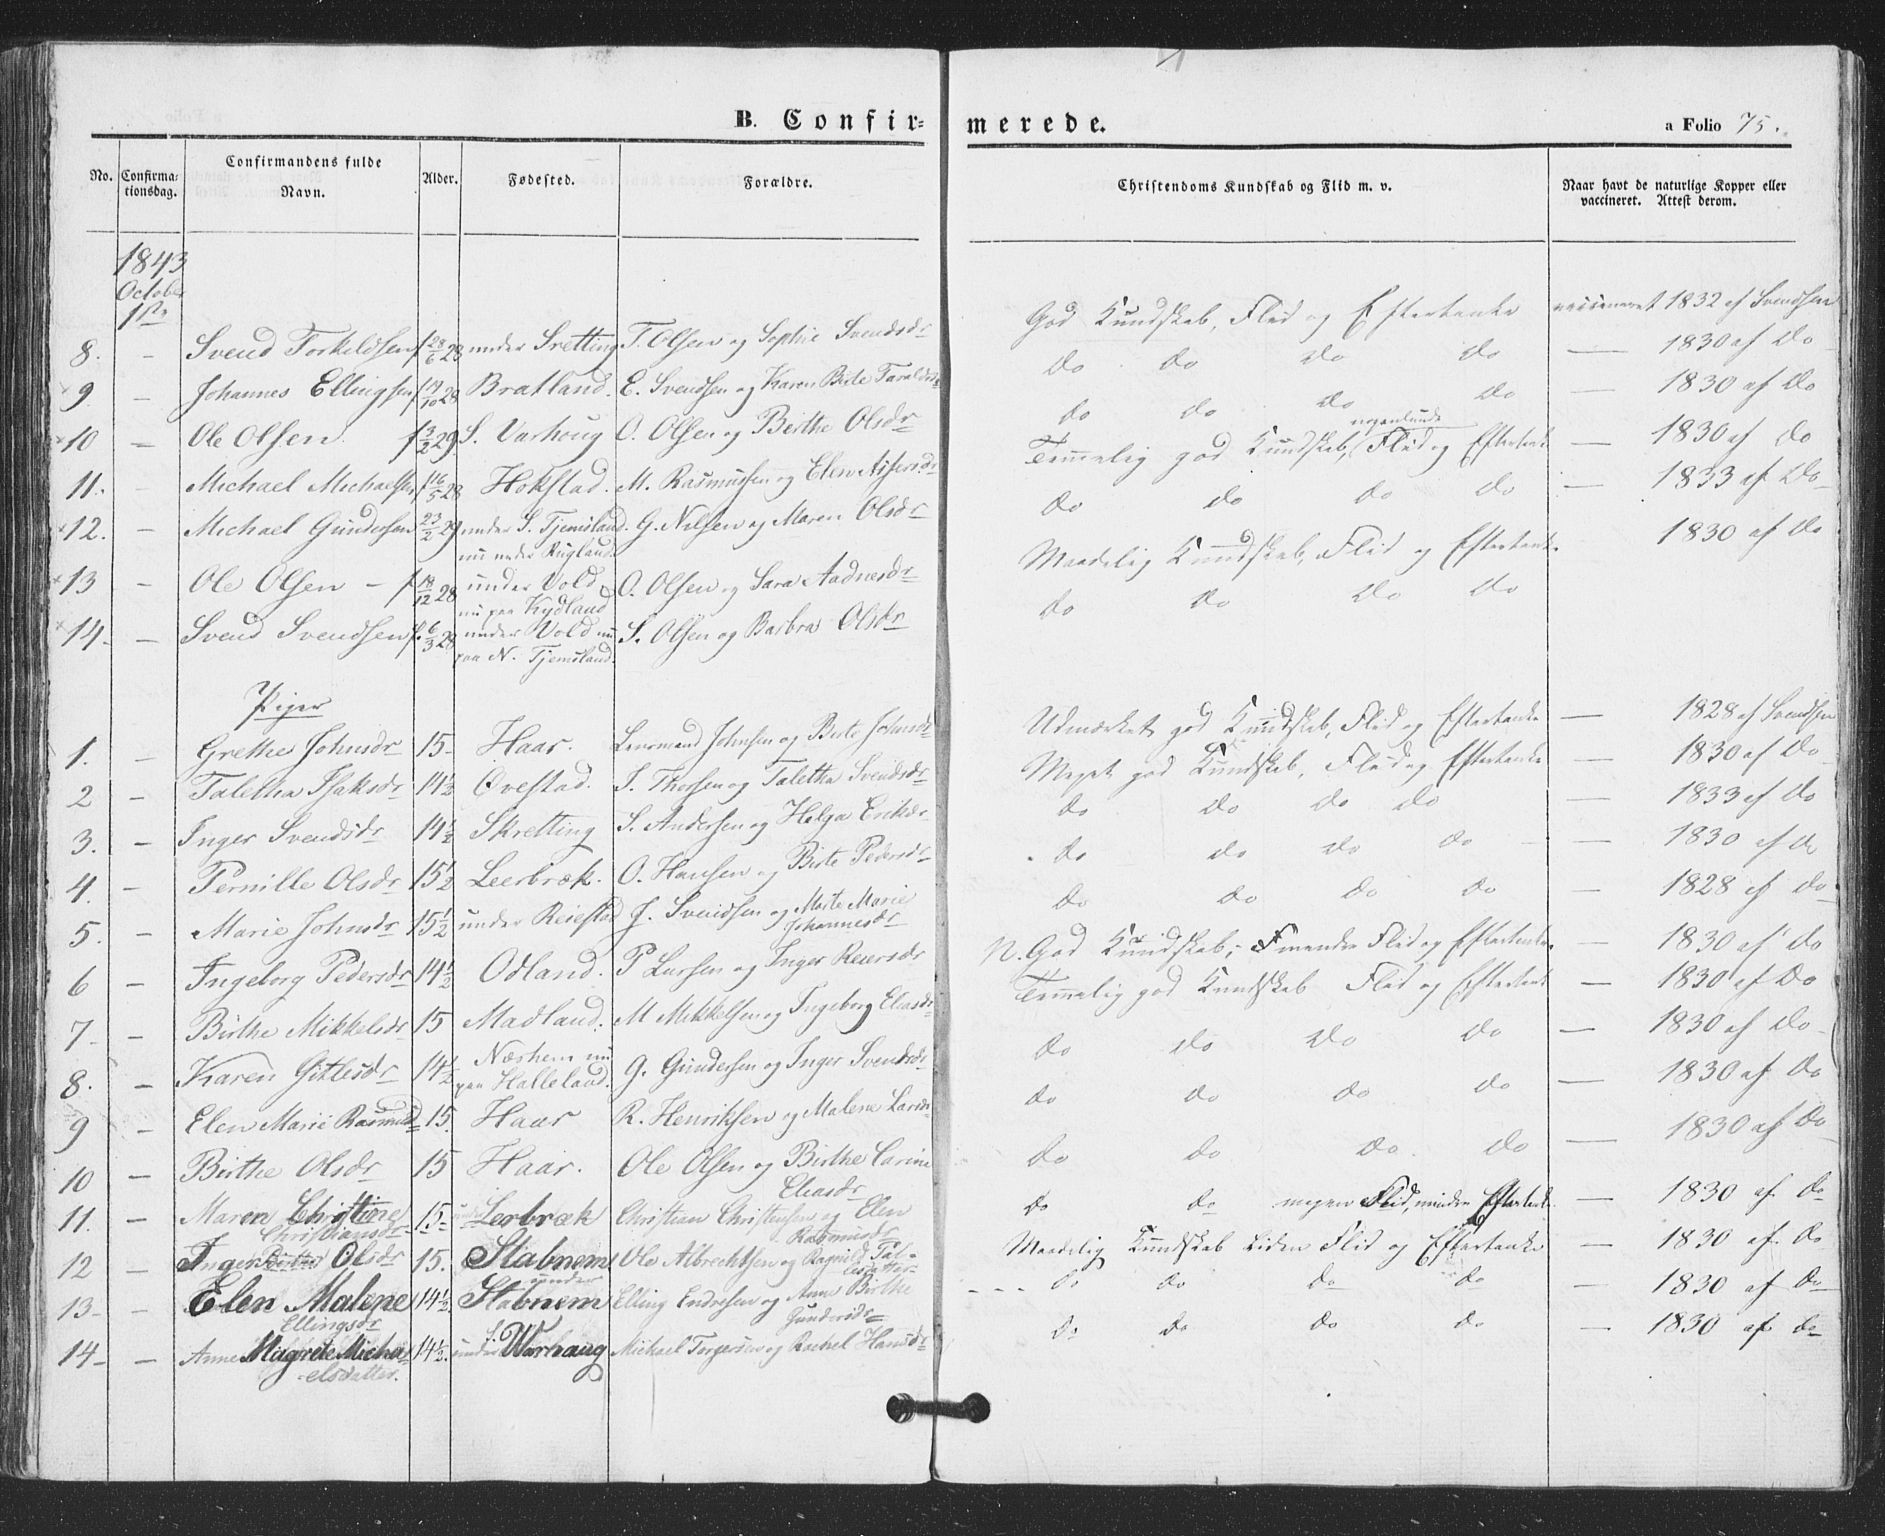 B. Confir-
merede.
a Folio 75.
No.
Confirma-
tionsdag.
Confirmandens fulde
Navn.
Alder.
Fødested.
Forældre.
Christendoms Kundskab og Flid m. v.
Naar havt de naturlige Kopper eller
vaccineret. Attest derom.
1843
October
1ste
8. — Svend Torkeldsen f 28/6 28 under Sretting T. Olsen og Sophie Svendsdr God Kundskab, Flid og Eftertanke vaccineret 1832 af Svendsen
9 — Johannes Ellingsen f 19/10 28 Bratland. E. Svendsen og Karen Birte Taraldsdr do do do do — 1830 af do
10 — Ole Olsen f 3/2 29 S. Varhoug O. Olsen og Birthe Olsdr do do do do — 1830 af do
nogenlunde
11. — Michael Michaelsen f 16/5 28 Hokstad. M. Rasmussen og Elen Assersdr Temmelig god Kundskab, Flid og Eftertanke — 1830 af do
12. — Michael Gundersen 23/2 29 under S. Tjemsland. G. Nilsen og Maren Olsdr do do do do — 1833 af do
nu under Rugland
13 — Ole Olsen — f 18/12 28 under Vold O. Olsen og Sara Aadnesdr Maadelig Kundskab, Flid og Eftertanke 1830 af do
nu paa Kydland
14. — Svend Svendsen f. 6/3 28 under Vold nu S. Olsen og Barbra Olsdr do do do do
paa N. Tjemsland.
Piger
1. — Grethe Johnsdr 15 — Haar. Lensmand Johnsen og Birte Johnsdr Udmærket god Kundskab, Flid og Eftertanke — 1828 af Svendsen
2 — Taletha Isaksdr 14½ Ovestad. I. Thorsen og Taletha Svendsdr Meget god Kundskab, Flid og Eftertanke — 1830 af do
3. — Inger Svendsdr 14½ Skretting S. Andersen og Helga Eriksdr do do do do — 1833 af do
4. — Pernille Olsdr 15½ Leerbræk. O. Hansen og Birte Pedersdr do do do do — 1830 af do
5. — Marie Johnsdr 15½ under Reiestad J. Svendsen og Marte Marie do do do do — 1828 af do
Johannesdr
6 — Ingeborg Pedersdr 14½ Odland. P Larsen og Inger Reiersdr N. God Kundskab; Flid og Eftertanke — 1830 af do
7 — Birthe Mikkelsdr 15 Madland. M Mikkelsen og Ingeborg Eliasdr Temmelig god Kundskab Flid og Eftertanke — 1830 af do
8. — Karen Gitlesdr 14½ Næshem nu G. Gundersen og Inger Svendsdr do do do do — 1830 af do
paa Halleland.
9 — Elen Marie Rasmusdr 15. Haar R. Henriksen og Malene Larsdr do do do do — 1830 af do
10 — Birthe Olsdr 15 Haar. Ole Olsen og Birthe Carine do do do do — 1830 af do
Eliasdr
11. — Maren Christine 15 under Lerbræk Christian Christensen og Elen do do megen Flid, mindre Eftertanke — 1830 af do
Christiansdr Rasmusdr
12 — Inger Birthe Olsdr 15. Stabnem Ole Albrechtsen og Ragnild Tal- Maadelig Kundskab Liden Flid og Eftertanke — 1830 af do
lesdatter
13 — Elen Malene 14½ under Stabnem Elling Endresen og Anne Birthe do do do do — 1830 af do
Ellingsdr Gundersdr
14 — — Anne Magrete Micha- 14½. under S. Warhaug Michael Torgersen og Rachel Hansdr do do do do — 1830 af do
elsdatter.